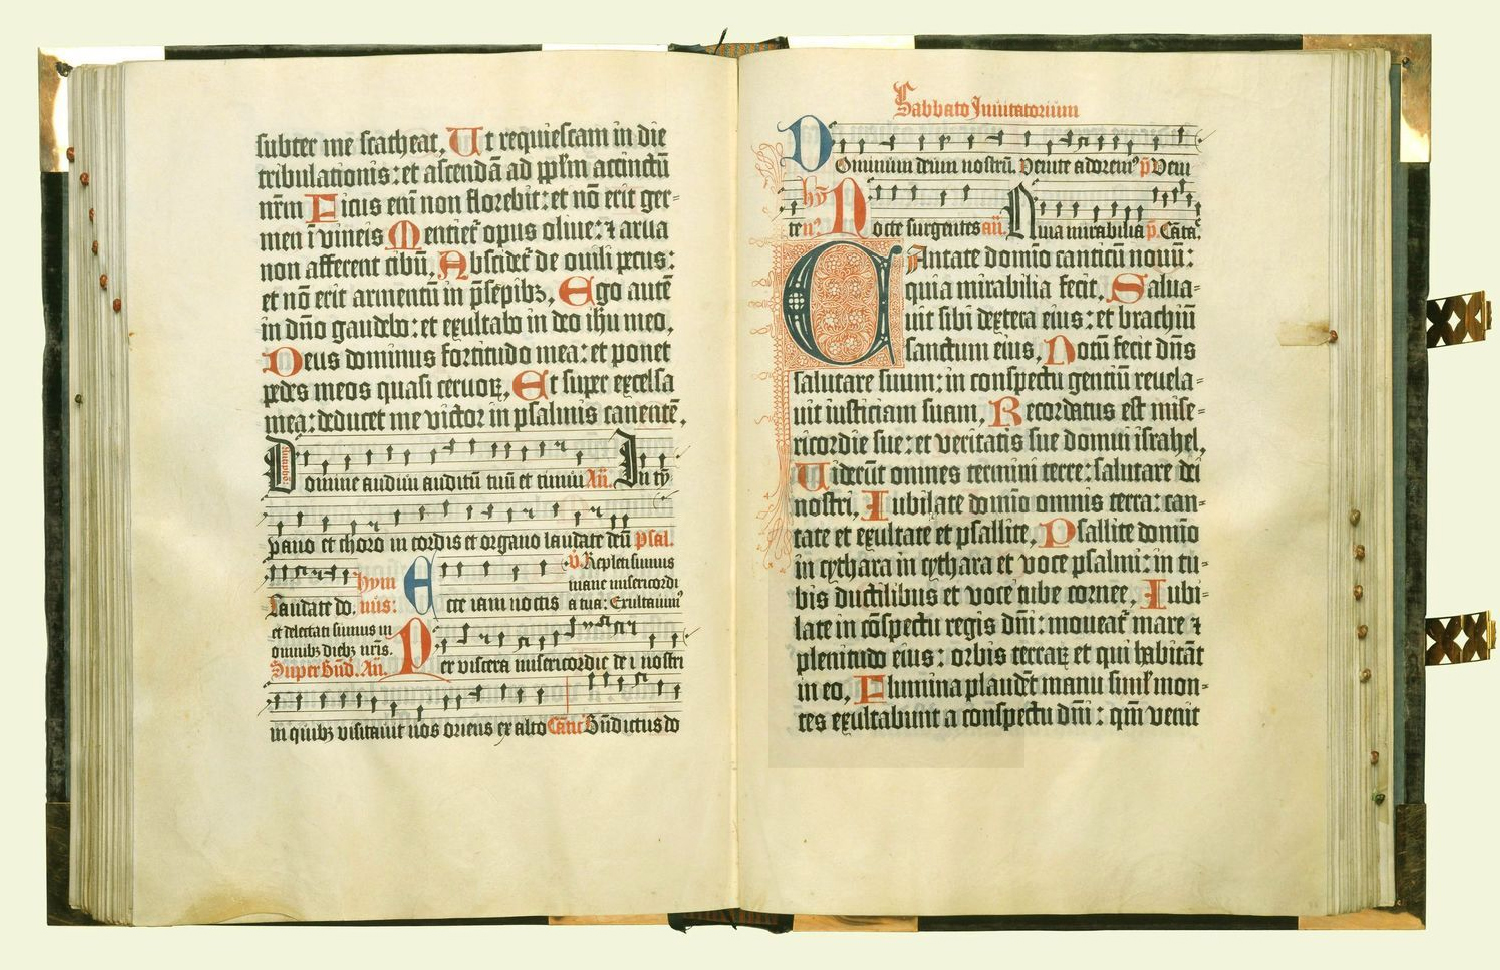 subter me scatheat. Ut requiescam in die
tribulationis: et ascendā ad pplm accinctū
nr̄m Ficus em̄ non florebit: et nō erit ger-
men ī vineis Mentiet᷑ opus olive: ⁊ arva
non afferent cibū. Abscidet᷑ de ovili pecus:
et nō erit armentū in p̄sepibꝫ. Ego autē
in dn̄o gaudebo: et exultabo in deo ih̄u meo.
Deus dominus fortitudo mea: et ponet
pedes meos quasi cervoꝝ. Et super excelsa
mea: deducet me victor in psalmis canentē.
Antipho. Domine audivi auditū tuū et timui An̄. In ty
pano et choro in cordis et organo laudate deū Psal.
Laudate do. hym nus: Ecce iam noctis v̄. Repleti sumus
mane misericordi
a tua: Exultavim᷒
et delectati sumus in
omnibꝫ diebꝫ nr̄is.
Super Bn̄d. An̄. Per viscera misericordie dei nostri
in quibꝫ visitavit nos oriens ex alto Cātic Bn̄dictus do
Sabbato Invitatorium
Dominum deum nostrū. Venite adorem᷒ p̄ Veni
te hȳ n᷒ Nocte surgentes an̄. Quia mirabilia p̄. Cāta.
CAntate domīo canticū novū:
quia mirabilia fecit. Salva-
vit sibi dextera eius: et brachiū
sanctum eius. Notū fecit dn̄s
salutare suum: in conspectu gentiū revela-
vit iusticiam suam. Recordatus est mise-
ricordie sue: et veritatis sue domui israhel.
Viderūt omnes termini terre: salutare dei
nostri. Iubilate domīo omnis terra: can-
tate et exultate et psallite. Psallite domīo
in cythara in cythara et voce psalmi: in tu-
bis ductilibus et voce tube cornee. Iubi-
late in cōspectu regis dn̄i: moveat᷑ mare ⁊
plenitudo eius: orbis terraꝝ et qui habitāt
in eo. Flumina plaudēt manu siml̄ mon-
tes exultabunt a conspectu dn̄i: qm̄ venit